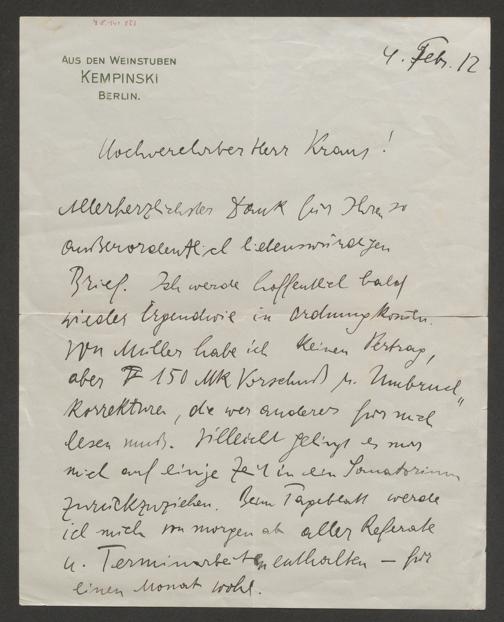 AUS DEN WEINSTUBEN
KEMPINSKI
BERLIN.
4. Febr. 12
Hochverehrter Herr Kraus!
Allerherzlichsten Dank für Ihren so
außerordentlich liebenswürdigen
Brief. Ich werde hoffentlich bald
wieder irgendwie in Ordnung kommen.
Von Müller habe ich keinen Vertrag,
aber 150 Mk Vorschuß u. „Umbruch"
Korrekturen, die wer anderer für mich
lesen muß. Vielleicht gelingt es mir
mich auf einige Zeit in ein Sanatorium
zurückzuziehen. Beim Tageblatt werde
ich mich von morgen ab aller Referate
u. Terminarbeiten enthalten — für
einen Monat wohl.